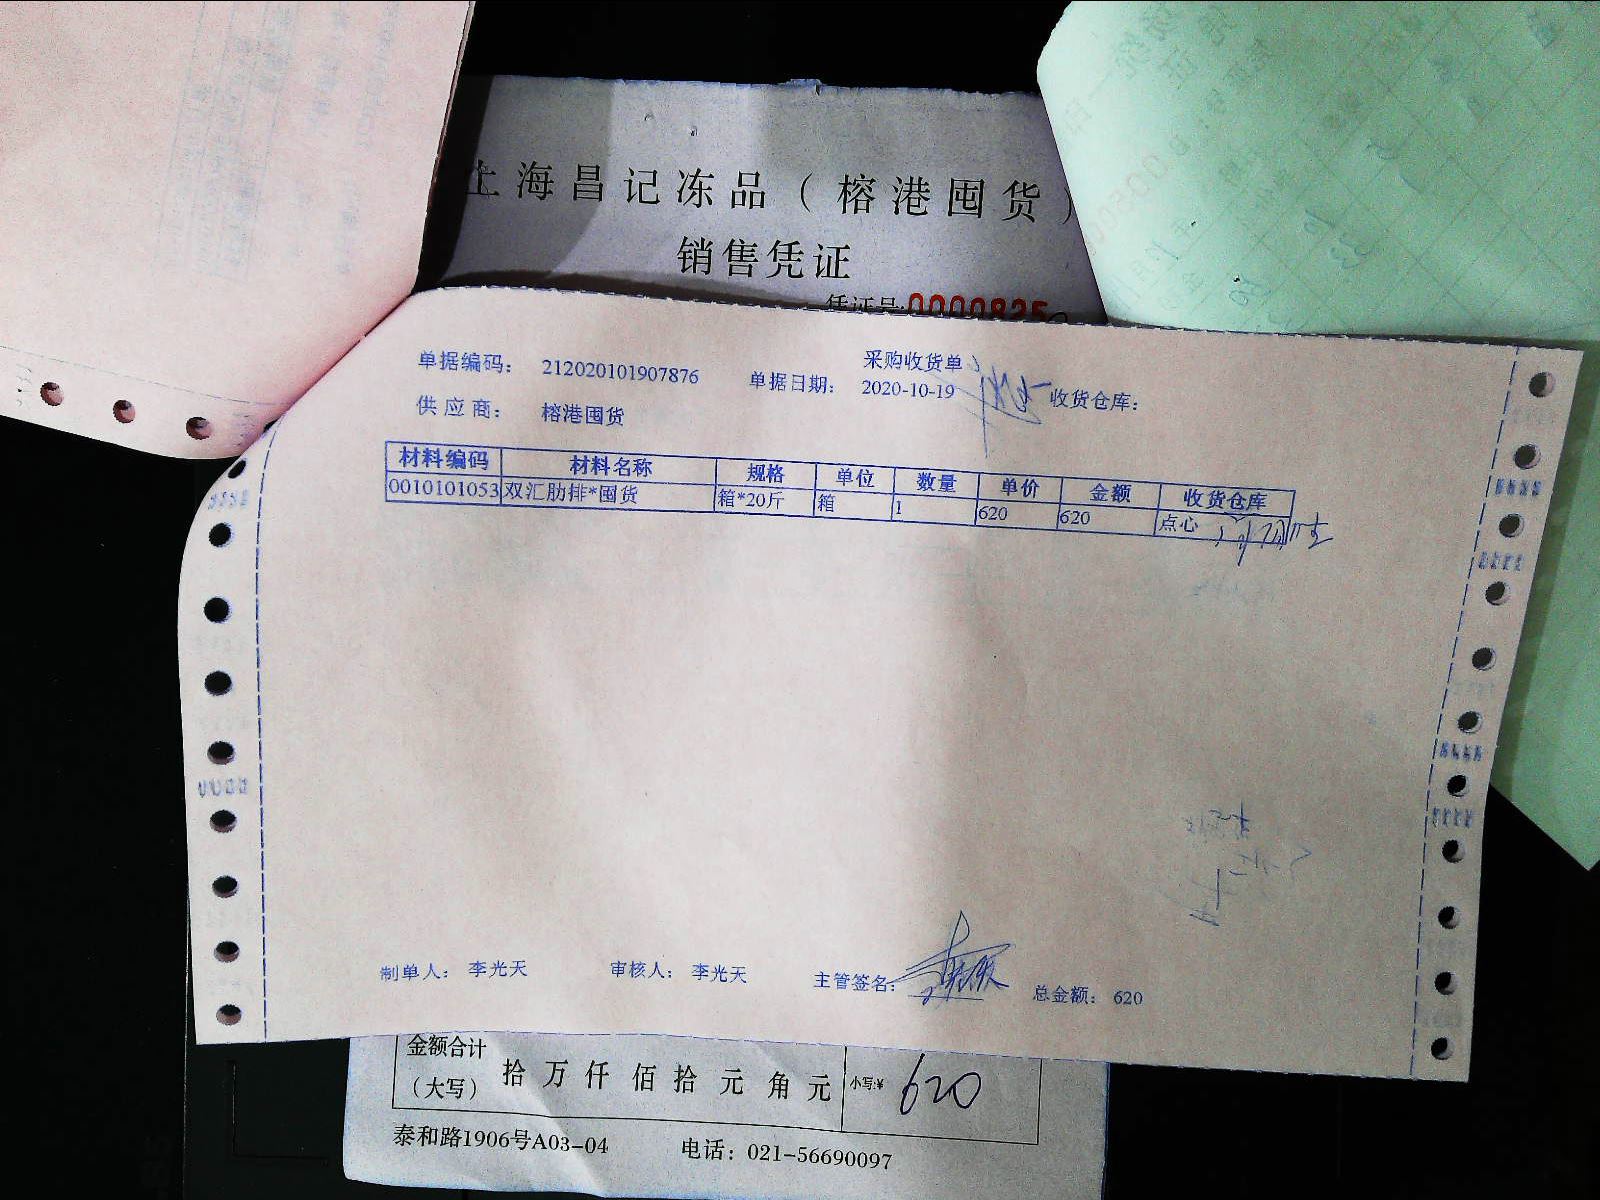 上海昌记冻品（榕港囤货）
销售凭证
凭证号:0000825
采购收货单
单据编码： 212020101907876 单据日期： 2020-10-19 收货仓库：
供应商： 榕港囤货
材料编码 材料名称 规格 单位 数量 单价 金额 收货仓库
0010101053 双汇肋排*囤货 箱*20斤 箱 1 620 620 点心
制单人： 李光天 审核人： 李光天 主管签名： 总金额： 620
金额合计
（大写） 拾 万 仟 佰 拾 元 角 元 小写:¥ 620
泰和路1906号A03-04 电话：021-56690097